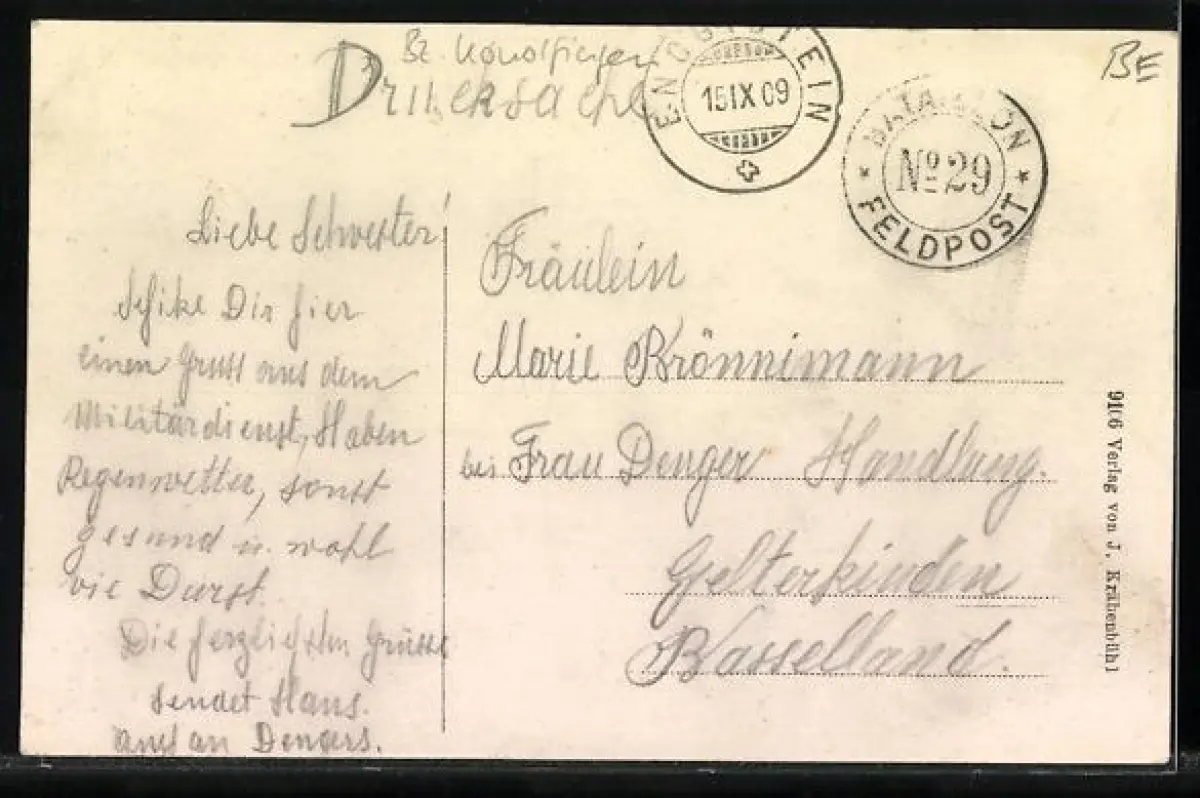 Bz. Konolfingen
BE
Drucksache
ENGGISTEIN
15 IX 09
BATAILLON
No 29
FELDPOST
Liebe Schwester!
Schike Dir hier
einen Gruss aus dem
Militärdienst, Haben
Regenwetter, sonst
gesund u. wohl
vie Durst.
Die herzlichsten Grüsse
sendet Hans.
auch an Dengers.
Fräulein
Marie Brönnimann
bei Frau Denger Handlung.
Gelterkinden
Basselland.
9106 Verlag von J. Krähenbühl